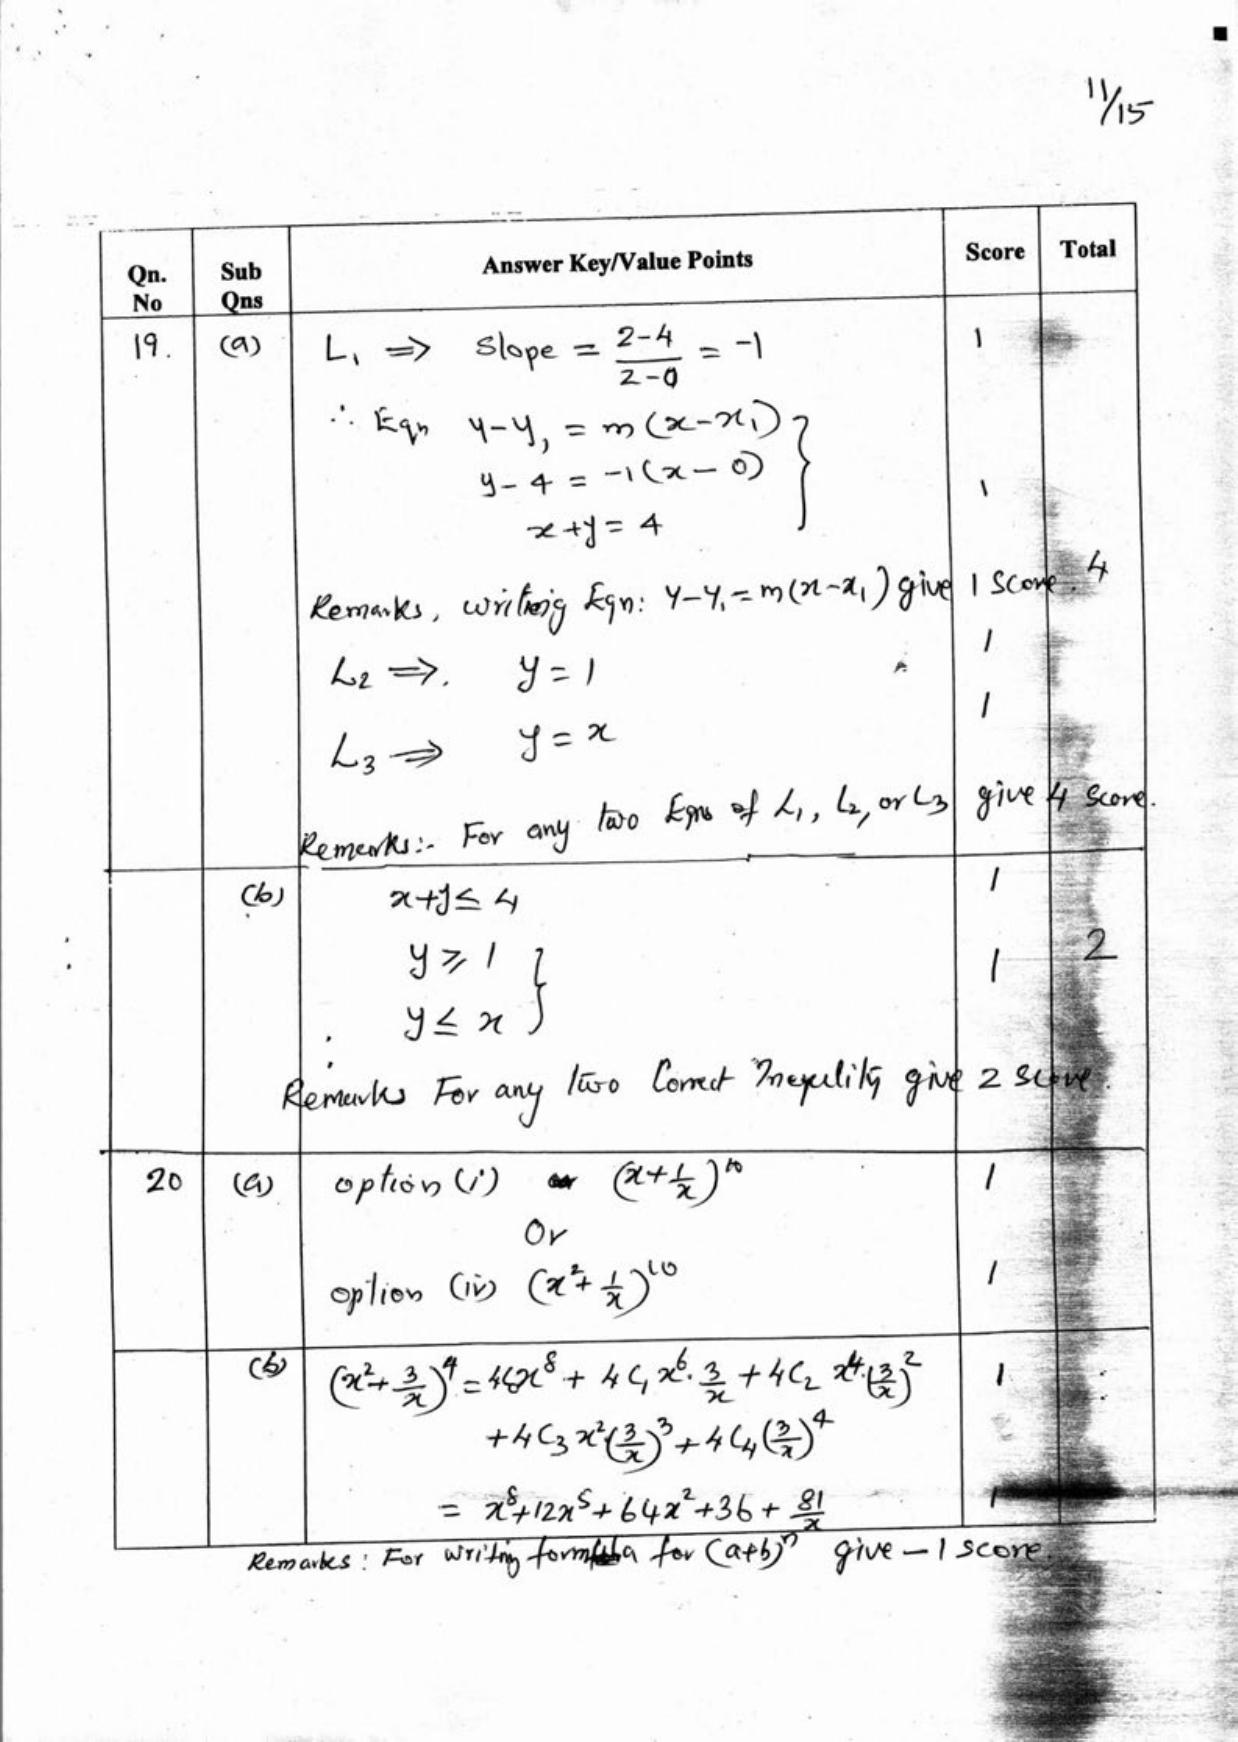 11/15
Qn. No Sub Qns Answer Key/Value Points Score Total
19. (a) L₁ ⇒ Slope = (2-4)/(2-0) = -1 1
∴ Eqn y-y₁ = m(x-x₁)
y-4 = -1(x-0) 1
x+y = 4
Remarks, writing Eqn: y-y₁ = m(x-x₁) give 1 Score. 4
L₂ ⇒. y = 1 1
L₃ ⇒ y = x 1
Remarks:- For any two Eqns of L₁, L₂, or L₃ give 4 Score.
(b) x+y ≤ 4 1
y ≥ 1 1 2
y ≤ x
Remarks For any two Correct Inequlity give 2 score.
20 (a) option (i) (x+1/x)¹⁰ 1
Or
option (iv) (x²+1/x)¹⁰ 1
(b) (x²+3/x)⁴ = 4C₀x⁸ + 4C₁x⁶·3/x + 4C₂ x⁴·(3/x)² 1
+4C₃x²(3/x)³ + 4C₄(3/x)⁴
= x⁸+12x⁵+64x²+36+81/x 1
Remarks: For writing formula for (a+b)ⁿ give – 1 score.